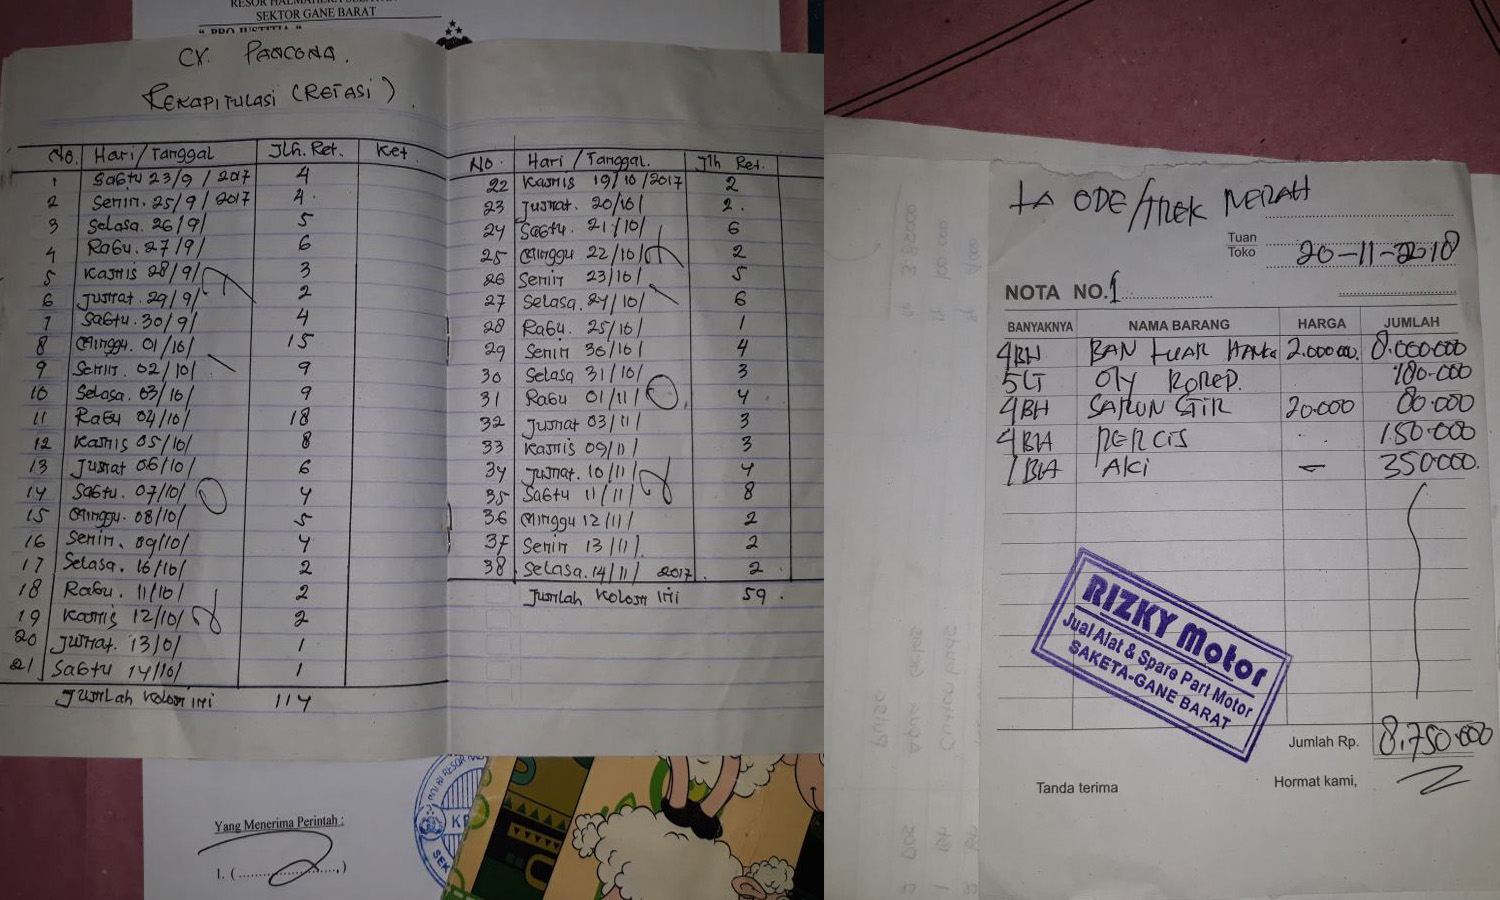 RESOR HALMAHERA SELATAN
SEKTOR GANE BARAT
“ PRO JUSTITIA “
CV. PANCONA.
REKAPITULASI (RETASI).
No. Hari/Tanggal Jlh. Ret. Ket
1 Sabtu 23/9/2017 4
2 Senin. 25/9/2017 4.
3 Selasa. 26/9/ 5
4 Rabu. 27/9/ 6
5 Kamis 28/9/ 3
6 Jumat. 29/9/ 2
7 Sabtu. 30/9/ 4
8 Minggu. 01/10/ 15
9 Senin. 02/10/ 9
10 Selasa. 03/10/ 9
11 Rabu 04/10/ 18
12 Kamis 05/10/ 8
13 Jumat 06/10/ 6
14 Sabtu. 07/10/ 4
15 Minggu. 08/10/ 5
16 Senin. 09/10/ 4
17 Selasa. 10/10/ 2
18 Rabu. 11/10/ 2
19 Kamis 12/10/ 2
20 Jumat. 13/0/ 1
21 Sabtu 14/10/ 1
Jumlah Kolom ini 114
No. Hari/Tanggal. Jlh Ret.
22 Kamis 19/10/2017 2
23 Jumat. 20/10/ 2.
24 Sabtu. 21/10/ 6
25 Minggu 22/10/ 2
26 Senin 23/10/ 5
27 Selasa. 24/10/ 6
28 Rabu. 25/10/ 1
29 Senin 30/10/ 4
30 Selasa 31/10/ 3
31 Rabu 01/11/ 4
32 Jumat 03/11/ 3
33 Kamis 09/11/ 3
34 Jumat. 10/11/ 4
35 Sabtu 11/11/ 8
36 Minggu 12/11/ 2
37 Senin 13/11/. 2
38 Selasa. 14/11/ 2017. 2
Jumlah Kolom ini 59.
Yang Menerima Perintah :
1. (....................)
LA ODE/TREK MERAH
Tuan
Toko 20-11-2018
NOTA NO. 1
BANYAKNYA NAMA BARANG HARGA JUMLAH
4BH BAN LUAR 2.000.000. 8.000.000
5LT OLY 180.000
4BH SARUN STIR 20.000 80.000
4BH 150.000
1BH AKI - 350.000.
RIZKY Motor
Jual Alat & Spare Part Motor
SAKETA-GANE BARAT
Jumlah Rp. 8.750.000
Tanda terima Hormat kami,